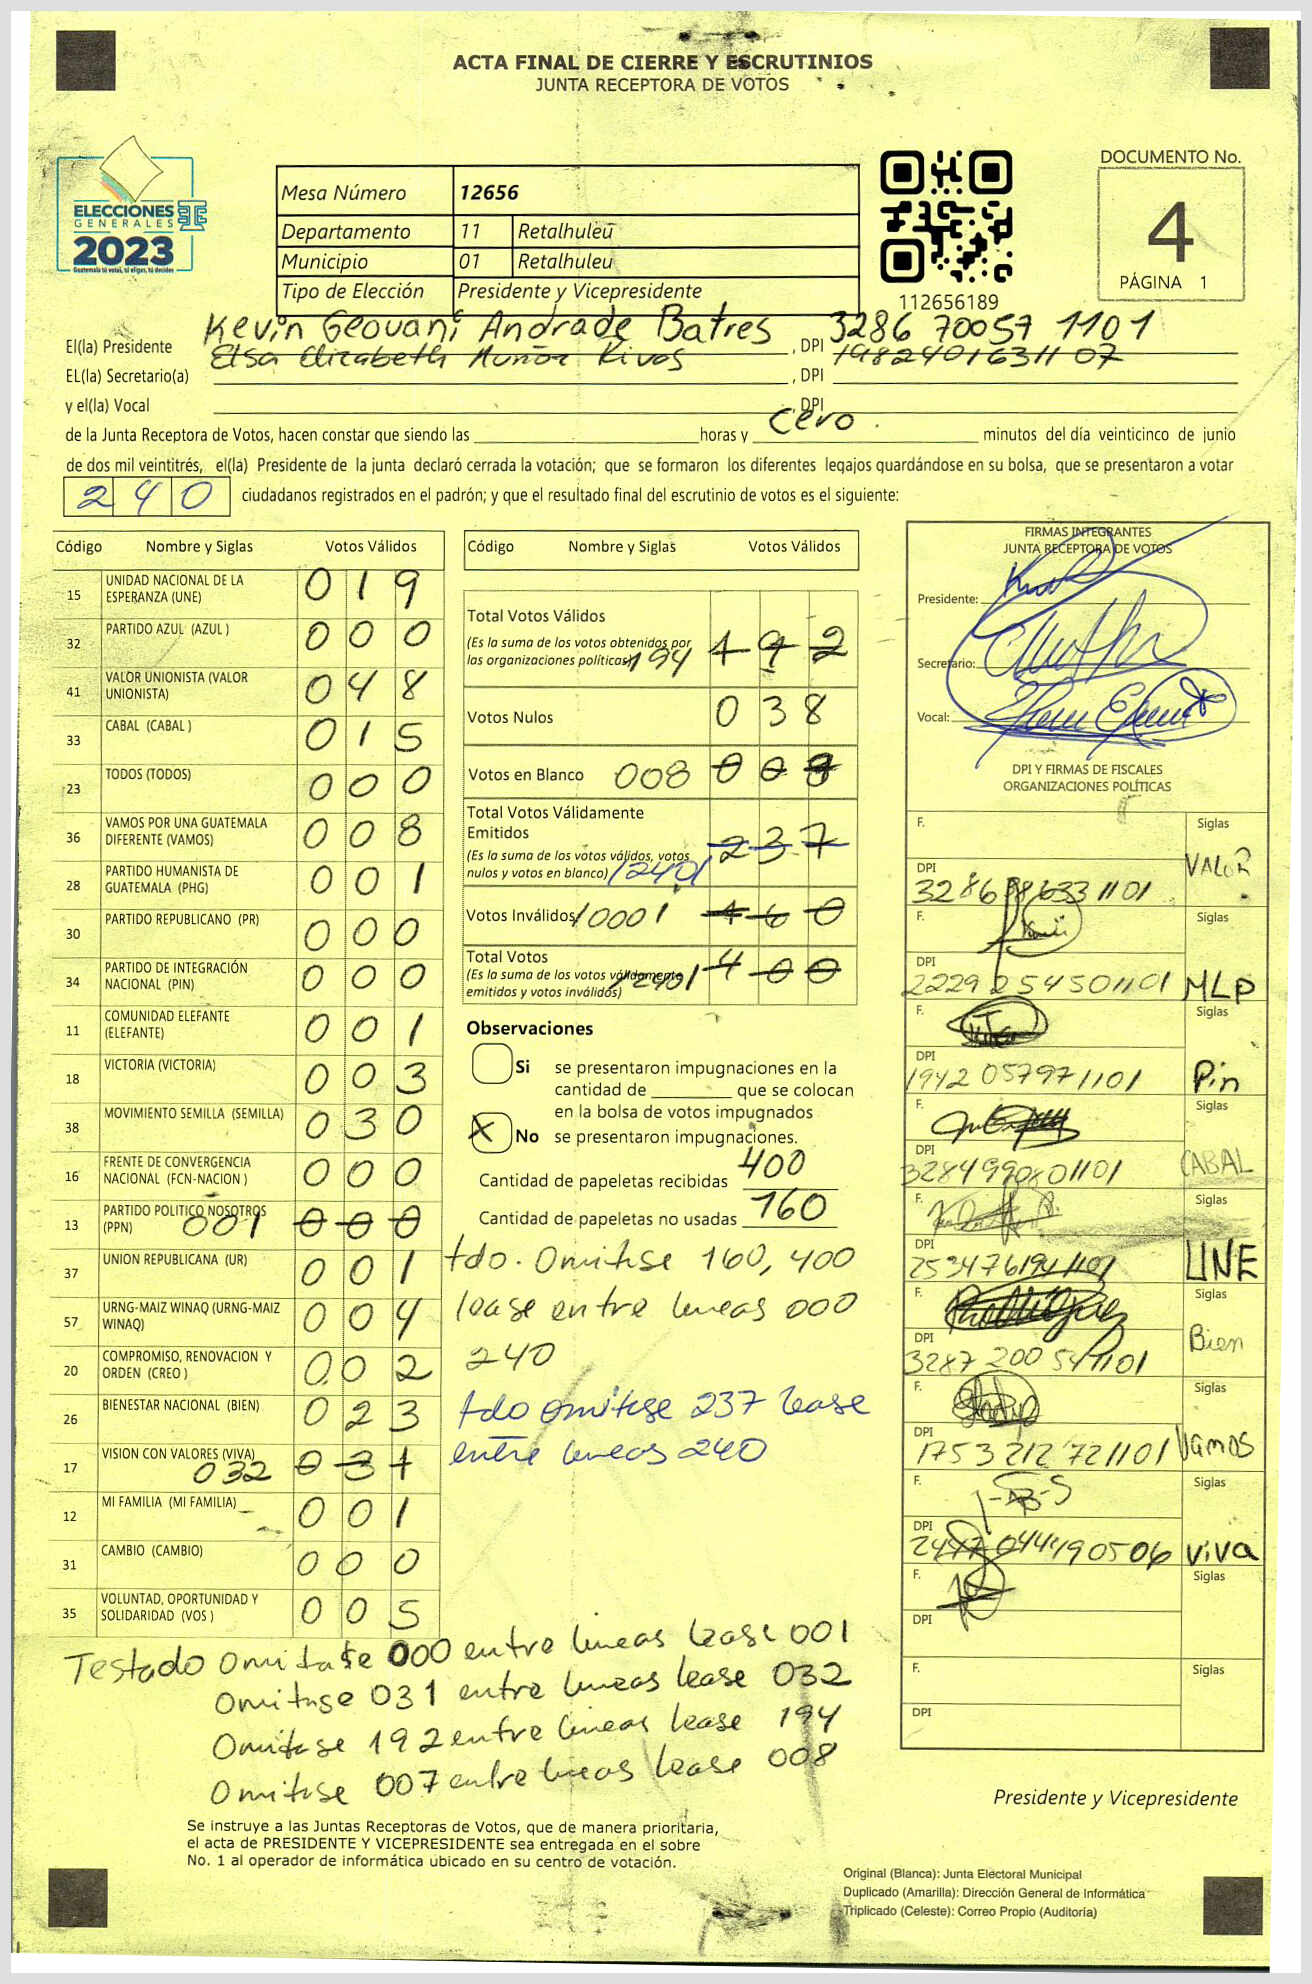 ACTA FINAL DE CIERRE Y ESCRUTINIOS
JUNTA RECEPTORA DE VOTOS
ELECCIONES
GENERALES
2023
Guatemala tú votas, tú eliges, tú decides
Mesa Número 12656
Departamento 11 Retalhuleu
Municipio 01 Retalhuleu
Tipo de Elección Presidente y Vicepresidente
112656189
DOCUMENTO No.
4
PÁGINA 1
Kevin Geovani Andrade Batres 3286 70057 1101
El(la) Presidente Elsa Elizabeth Muñoz Rivas , DPI 1982401631107
EL(la) Secretario(a) , DPI
y el(la) Vocal , DPI
de la Junta Receptora de Votos, hacen constar que siendo las horas y cero minutos del día veinticinco de junio
de dos mil veintitrés, el(la) Presidente de la junta declaró cerrada la votación; que se formaron los diferentes legajos guardándose en su bolsa, que se presentaron a votar
240 ciudadanos registrados en el padrón; y que el resultado final del escrutinio de votos es el siguiente:
Código Nombre y Siglas Votos Válidos
15 UNIDAD NACIONAL DE LA ESPERANZA (UNE) 019
32 PARTIDO AZUL (AZUL ) 000
41 VALOR UNIONISTA (VALOR UNIONISTA) 048
33 CABAL (CABAL ) 015
23 TODOS (TODOS) 000
36 VAMOS POR UNA GUATEMALA DIFERENTE (VAMOS) 008
28 PARTIDO HUMANISTA DE GUATEMALA (PHG) 001
30 PARTIDO REPUBLICANO (PR) 000
34 PARTIDO DE INTEGRACIÓN NACIONAL (PIN) 000
11 COMUNIDAD ELEFANTE (ELEFANTE) 001
18 VICTORIA (VICTORIA) 003
38 MOVIMIENTO SEMILLA (SEMILLA) 030
16 FRENTE DE CONVERGENCIA NACIONAL (FCN-NACION ) 000
13 PARTIDO POLITICO NOSOTROS (PPN) 001 000
37 UNION REPUBLICANA (UR) 001
57 URNG-MAIZ WINAQ (URNG-MAIZ WINAQ) 004
20 COMPROMISO, RENOVACION Y ORDEN (CREO ) 002
26 BIENESTAR NACIONAL (BIEN) 023
17 VISION CON VALORES (VIVA) 032 031
12 MI FAMILIA (MI FAMILIA) 001
31 CAMBIO (CAMBIO) 000
35 VOLUNTAD, OPORTUNIDAD Y SOLIDARIDAD (VOS ) 005
Código Nombre y Siglas Votos Válidos
Total Votos Válidos
(Es la suma de los votos obtenidos por
las organizaciones políticas) 194 192
Votos Nulos 038
Votos en Blanco 008 007
Total Votos Válidamente
Emitidos
(Es la suma de los votos válidos, votos
nulos y votos en blanco) /240/ 237
Votos Inválidos /000/ 160
Total Votos
(Es la suma de los votos válidamente
emitidos y votos inválidos) /240/ 400
Observaciones
Si se presentaron impugnaciones en la
cantidad de que se colocan
en la bolsa de votos impugnados
X No se presentaron impugnaciones.
Cantidad de papeletas recibidas 400
Cantidad de papeletas no usadas 160
tdo. Omitase 160, 400
lease entre lineas 000
240
tdo omitase 237 lease
entre lineas 240
FIRMAS INTEGRANTES
JUNTA RECEPTORA DE VOTOS
Presidente:
Secretario:
Vocal:
DPI Y FIRMAS DE FISCALES
ORGANIZACIONES POLÍTICAS
F. Siglas
VALOR
DPI
F. Siglas
DPI
2229254501101 MLP
F. Siglas
DPI
1942 05797 1101 Pin
F. Siglas
DPI
3284999801101 CABAL
F. Siglas
DPI
2534761941101 UNE
F. Siglas
Bien
DPI
3287 200 541101
F. Siglas
DPI
1753 212 721101 Vamos
F. Siglas
DPI
2477044490506 viva
F. Siglas
DPI
F. Siglas
DPI
Testado Omitase 000 entre lineas lease 001
Omitase 031 entre lineas lease 032
Omitase 192 entre lineas lease 194
Omitase 007 entre lineas lease 008
Presidente y Vicepresidente
Se instruye a las Juntas Receptoras de Votos, que de manera prioritaria,
el acta de PRESIDENTE Y VICEPRESIDENTE sea entregada en el sobre
No. 1 al operador de informática ubicado en su centro de votación.
Original (Blanca): Junta Electoral Municipal
Duplicado (Amarilla): Dirección General de Informática
Triplicado (Celeste): Correo Propio (Auditoría)